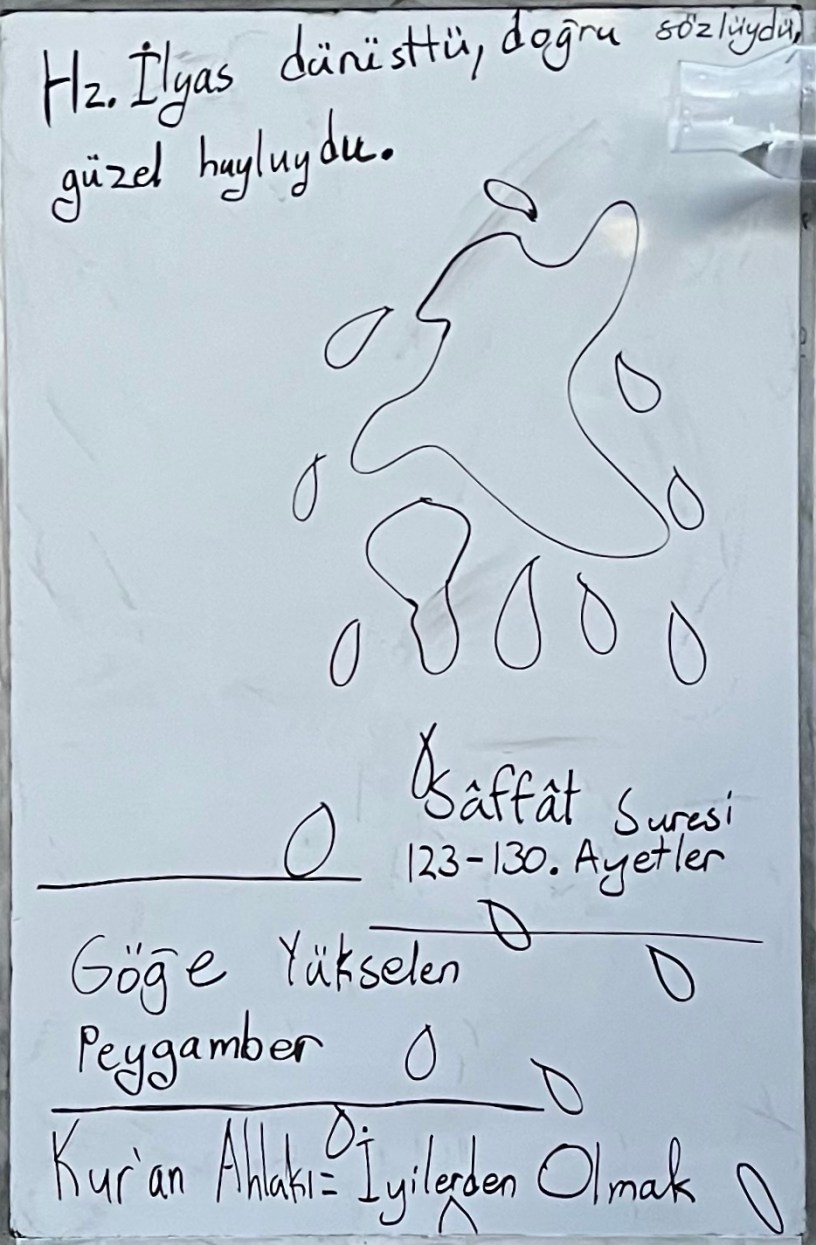 Hz. İlyas dürüsttü, doğru sözlüydü,
güzel huyluydu.
Sâffât Suresi
123-130. Ayetler
Göğe Yükselen
Peygamber
Kur'an Ahlakı= İyilerden Olmak